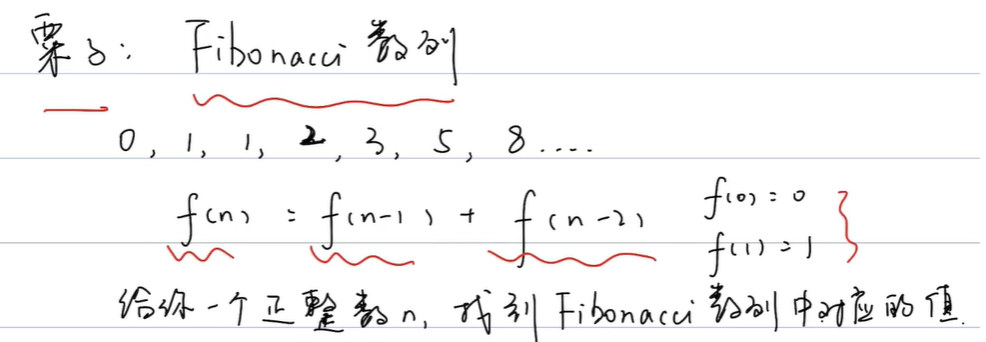 栗子: Fibonacci 数列
0, 1, 1, 2, 3, 5, 8 ....
f(n) = f(n-1) + f(n-2) f(0) = 0
f(1) = 1
给你一个正整数n, 找到Fibonacci数列中对应的值.